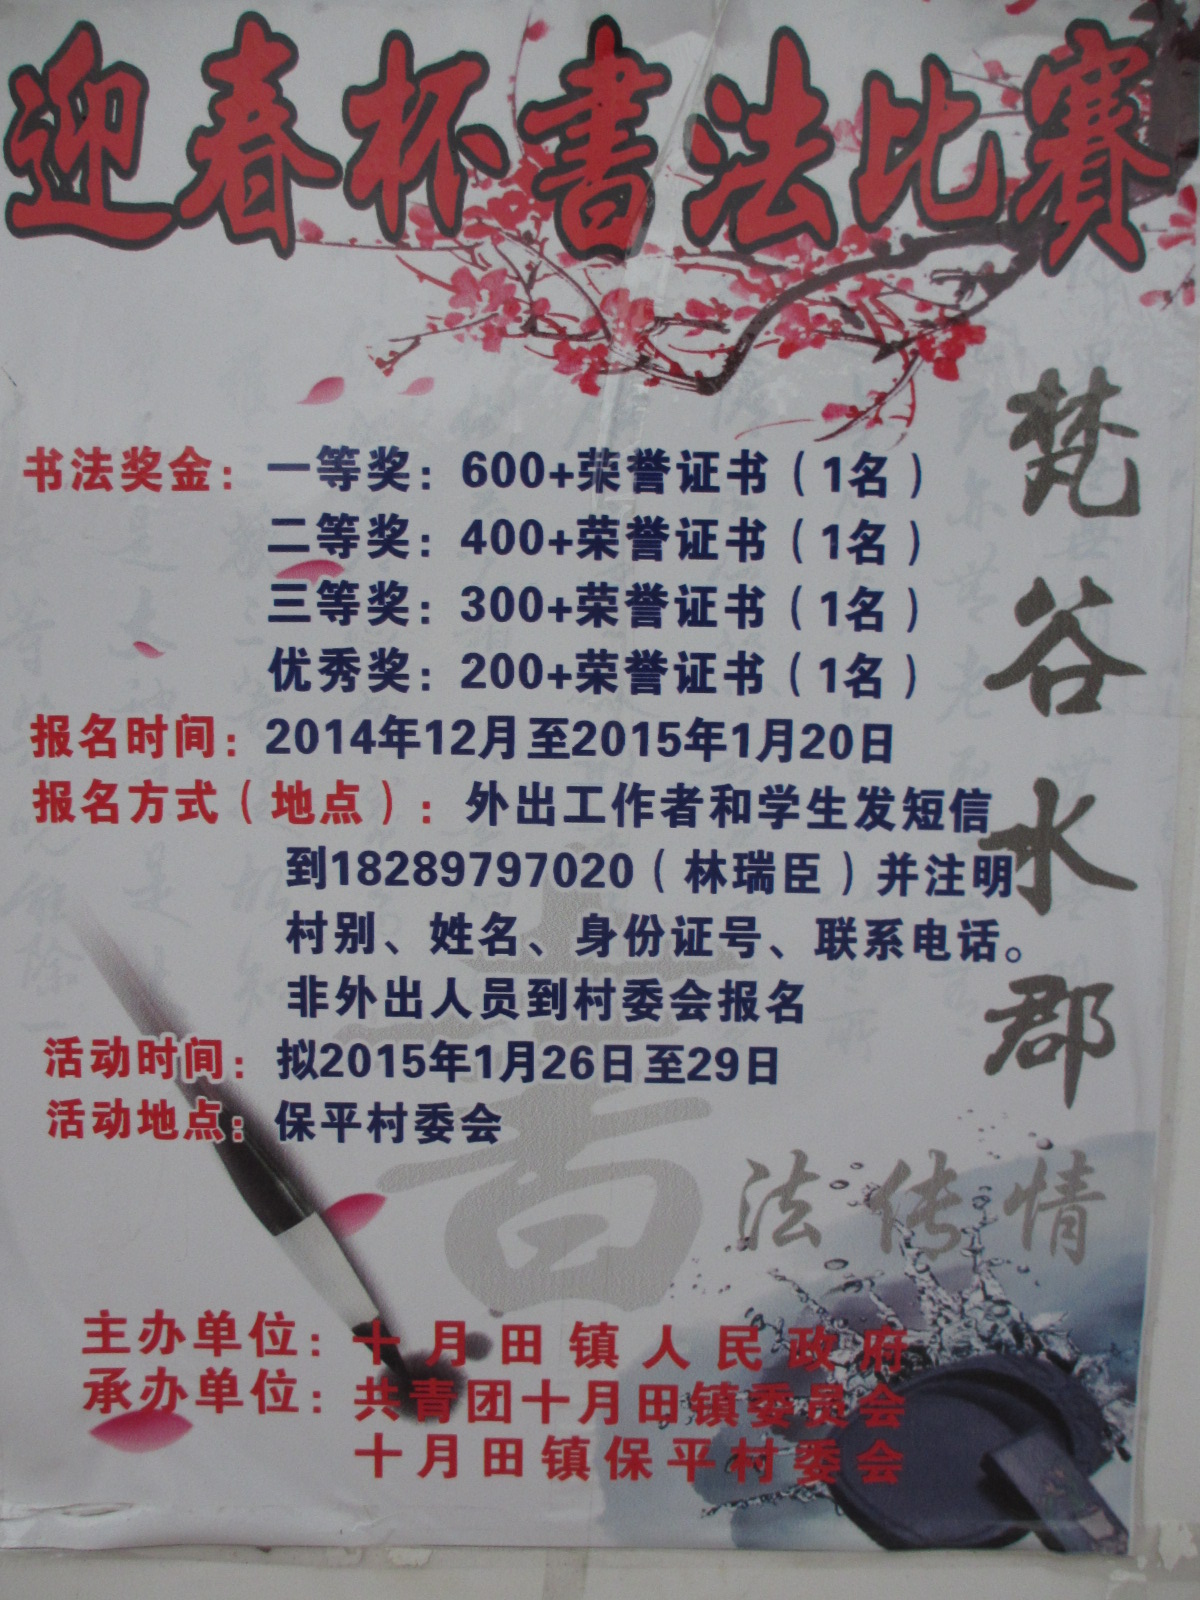 迎春杯書法比賽
书法奖金：一等奖：600+荣誉证书（1名）
二等奖：400+荣誉证书（1名）
三等奖：300+荣誉证书（1名）
优秀奖：200+荣誉证书（1名）
报名时间：2014年12月至2015年1月20日
报名方式（地点）：外出工作者和学生发短信
到18289797020（林瑞臣）并注明
村别、姓名、身份证号、联系电话。
非外出人员到村委会报名
活动时间：拟2015年1月26日至29日
活动地点：保平村委会
梵谷水郡
書
法传情
主办单位：十月田镇人民政府
承办单位：共青团十月田镇委员会
十月田镇保平村委会